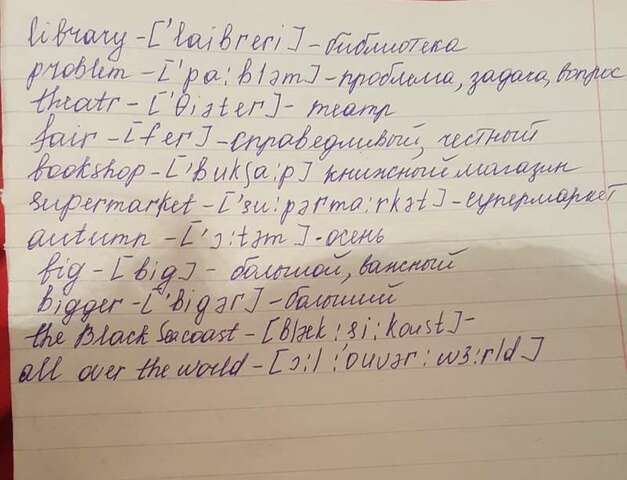 library - ['laibreri] - библиотека
problem - ['pa:bləm] - проблема, задача, вопрос
theatr - ['θiəter] - театр
fair - [fer] - справедливый, честный
bookshop - ['bukʃa:p] книжный магазин
supermarket - ['su:pərma:rkət] - супермаркет
autumn - ['ɔ:təm] - осень
big - [big] - большой, важный
bigger - ['bigər] - больший
the Black Sea coast - [blæk : si : koust] -
all over the world - [ɔ:l :'ouvər : wɜ:rld]